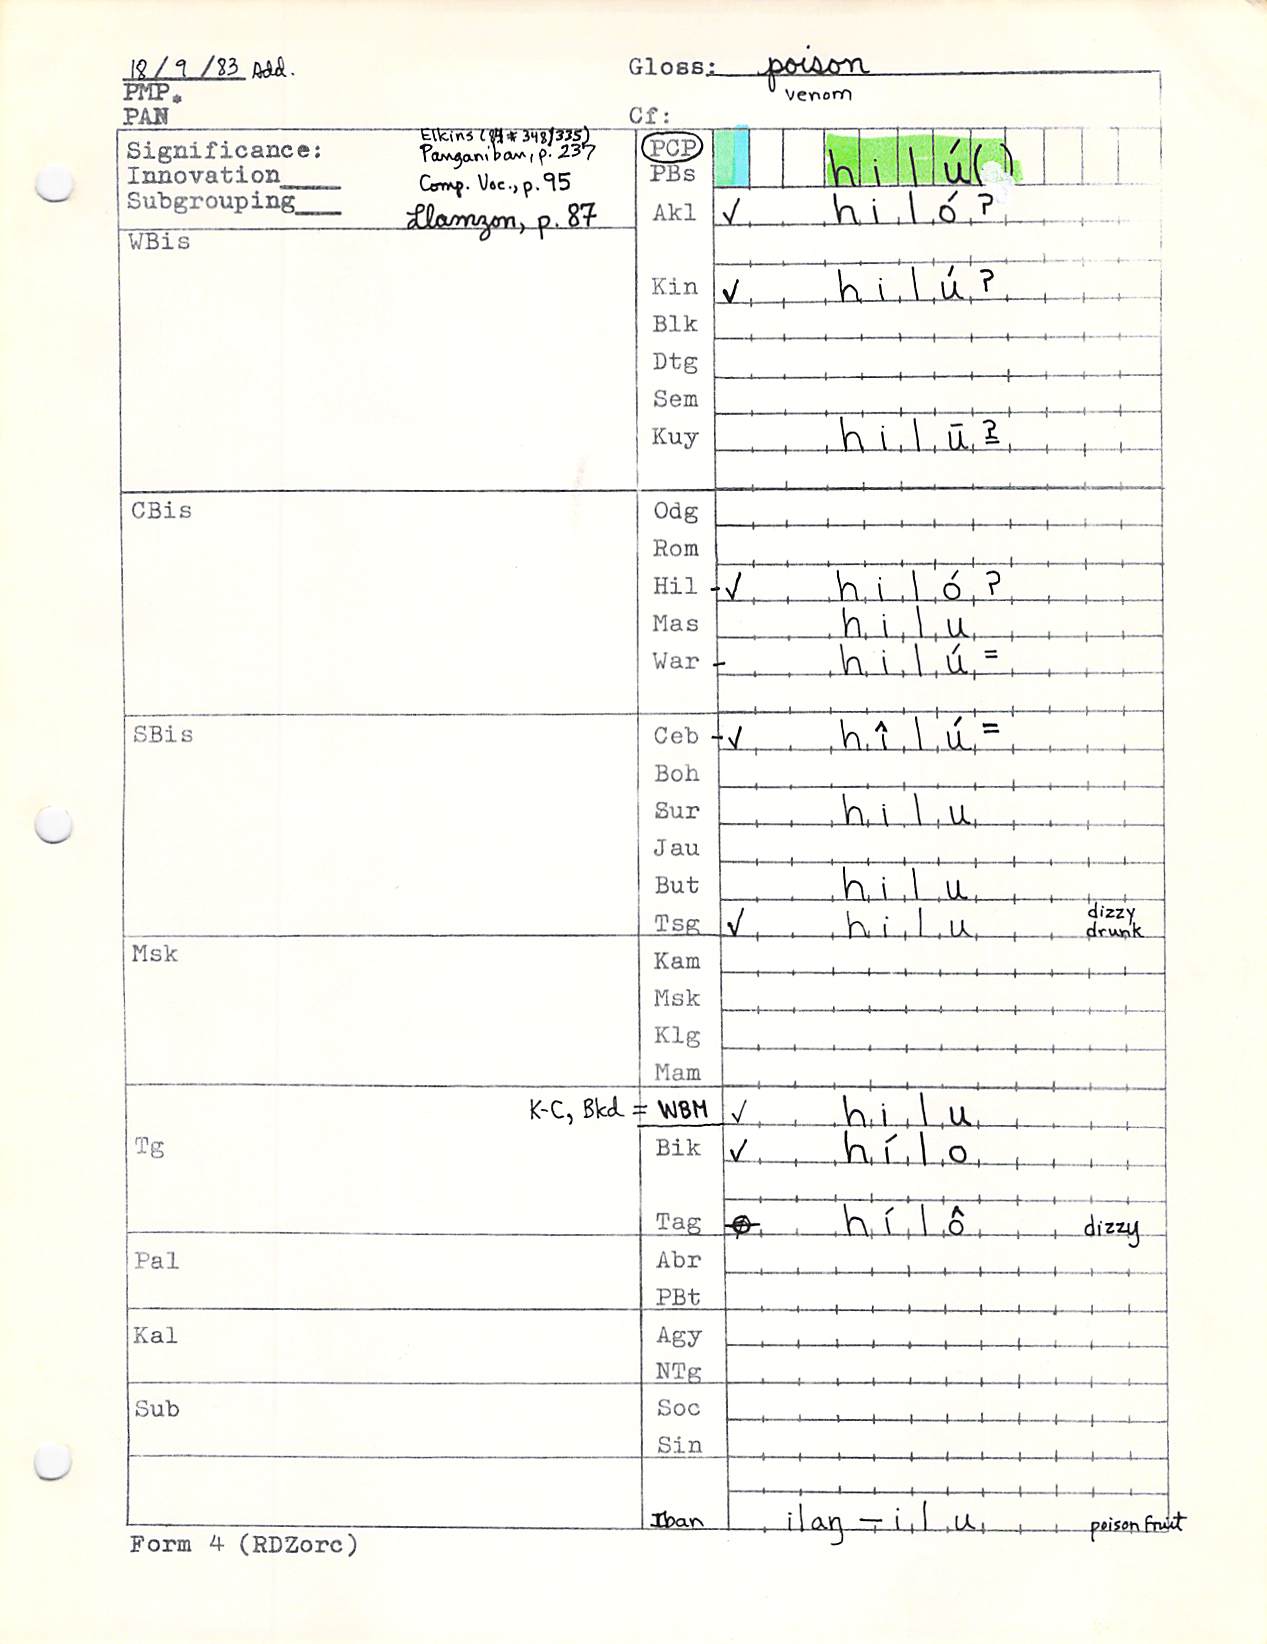 18/9/83 Add.
Gloss: poison
venom
PMP*
PAN
Cf:
Significance:
Innovation____
Subgrouping___
Elkins (84 # 348/335)
Panganiban, p. 237
Comp. Voc., p. 95
Llamzon, p. 87
PCP
PBs hilú( )
Akl ✓ hiló?
WBis
Kin ✓ hilú?
Blk
Dtg
Sem
Kuy hilū?
CBis
Odg
Rom
Hil - ✓ hiló?
Mas hilu
War - hilú =
SBis
Ceb - ✓ hîlú =
Boh
Sur hilu
Jau
But hilu
Tsg ✓ hilu dizzy
drunk
Msk
Kam
Msk
Klg
Mam
K-C, Bkd = WBM ✓ hilu
Tg
Bik ✓ hílo
Tag hílô dizzy
Pal
Abr
PBt
Kal
Agy
NTg
Sub
Soc
Sin
Iban ilaŋ - ilu poison fruit
Form 4 (RDZorc)